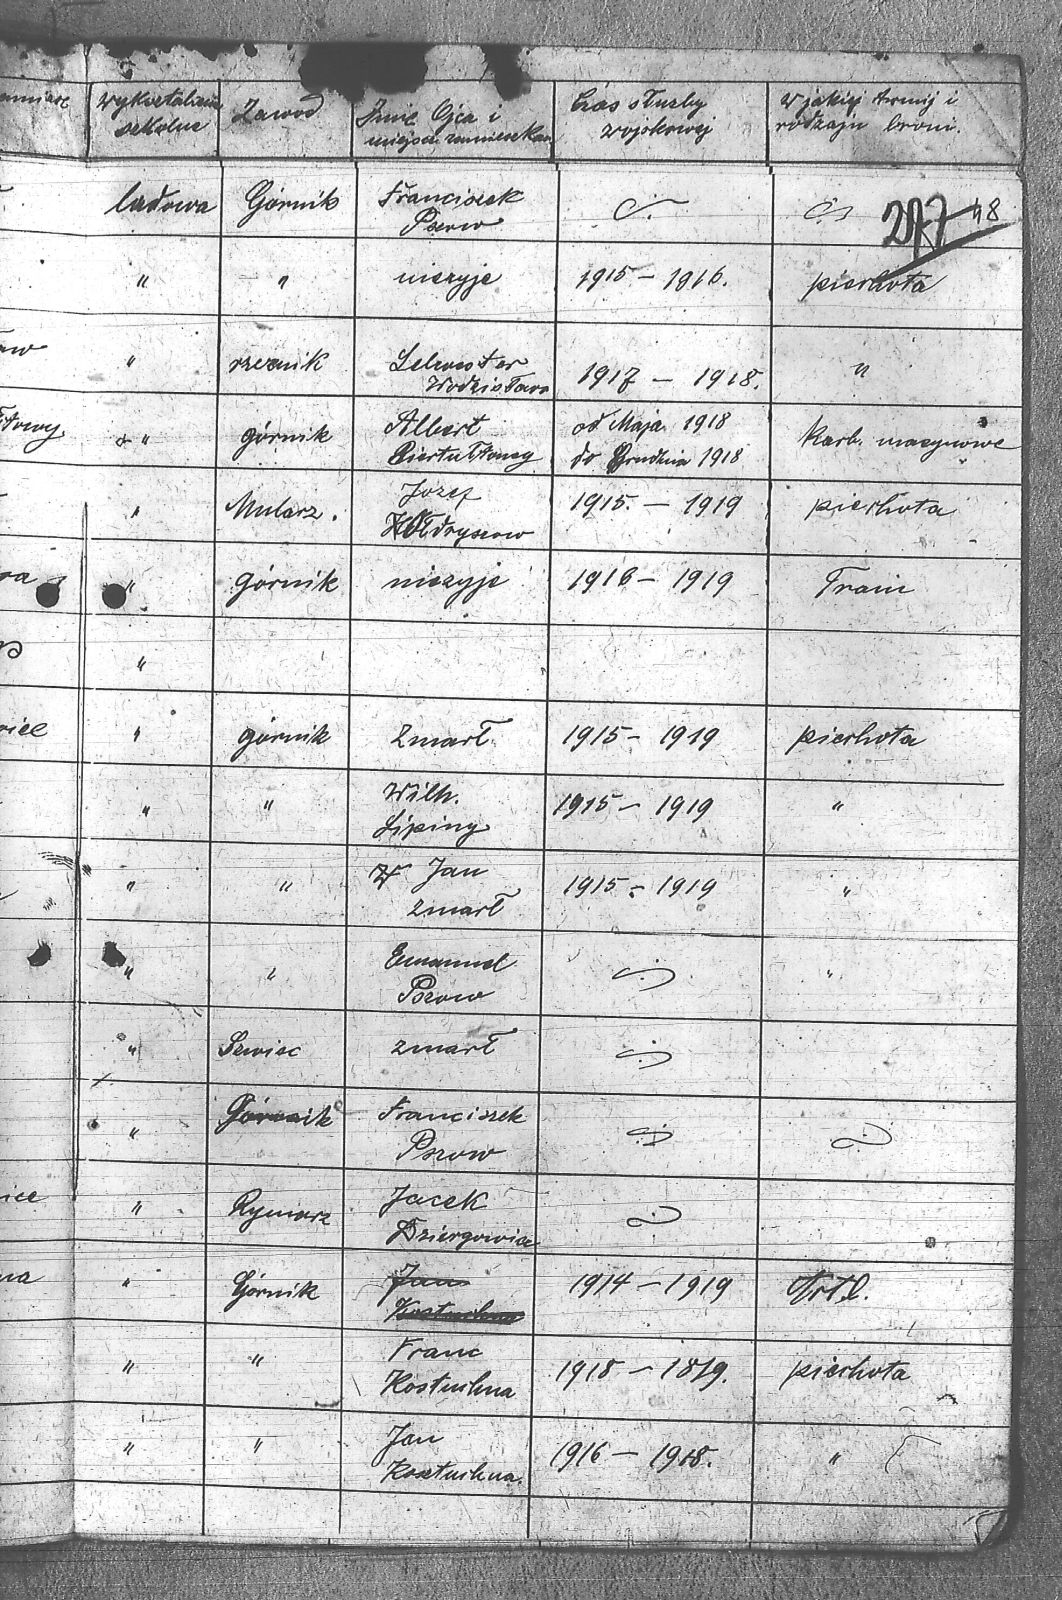 wykształcenie szkolne Zawód Imię Ojca i miejsce zamieszkan Czas służby wojskowej w jakiej Armij i rodzaju broni.
ludowa Górnik Franciszek Pszow
277 48
" " nieżyje 1915 - 1916. piechota
ow " rzeznik Wodzisław 1917 - 1918. "
" górnik Albert od Maja 1918 do Grudnia 1918 karb. maszynowe
" Mularz. Jozef 1915. - 1919 piechota
ra " górnik nieżyje 1916 - 1919 Train
"
wice " górnik zmarł 1915 - 1919 piechota
" " Wilh. 1915 - 1919 "
" " Jan zmarł 1915 - 1919 "
" " Emanuel Pszow "
" Szwiec zmarł
" Górnik Franciszek Pszow
ice " Rymarz Jacek Dziergowice
na " Górnik Jan Kostuchna 1914 - 1919 Artl.
" " Franc Kostuchna 1918 - 1819. piechota
" " Jan Kostuchna. 1916 - 1918. "